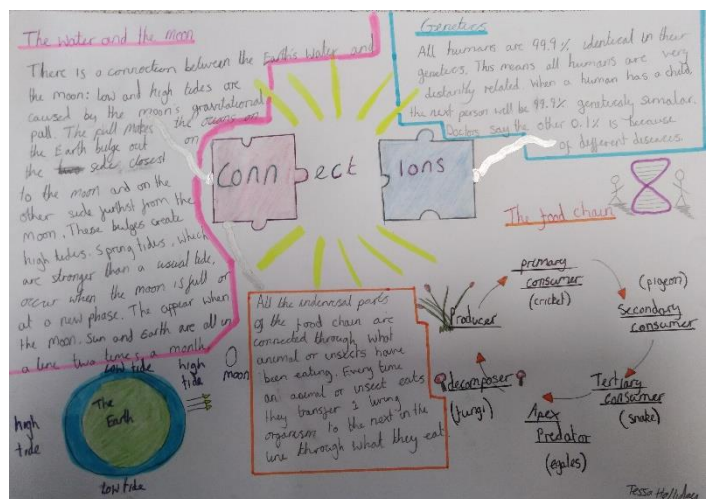 The Water and the moon
There is a connection between the Earth's Water and
the moon: low and high tides are
caused by the moon's gravitational
pull. The pull makes the oceans on
the Earth bulge out on
the side closest
to the moon and on the
other side furthest from the
moon. These bulges create
high tides. Spring tides, which
are stronger than a usual tide,
occur when the moon is full or
at a new phase. The appear when
the moon, Sun and Earth are all in
a line two times a month
low tide
high
tide
moon
The
Earth
high
tide
low tide
Connect Ions
Genetics
All humans are 99.9% identical in their
genetics. This means all humans are very
distantly related. When a human has a child
the next person will be 99.9% genetically simalar.
Doctors say the other 0.1% is because
of different diseases.
The food chain
All the parts
of the food chain are
connected through what
animal or insects have
been eating. Every time
an animal or insect eats
they transfer 1
organism to the next in the
line through what they eat
Producer
primary
consumer
(cricket)
(pigeon)
Secondary
consumer
Tertiary
consumer
(snake)
Apex
Predator
(egales)
decomposer
(fungi)
Tessa